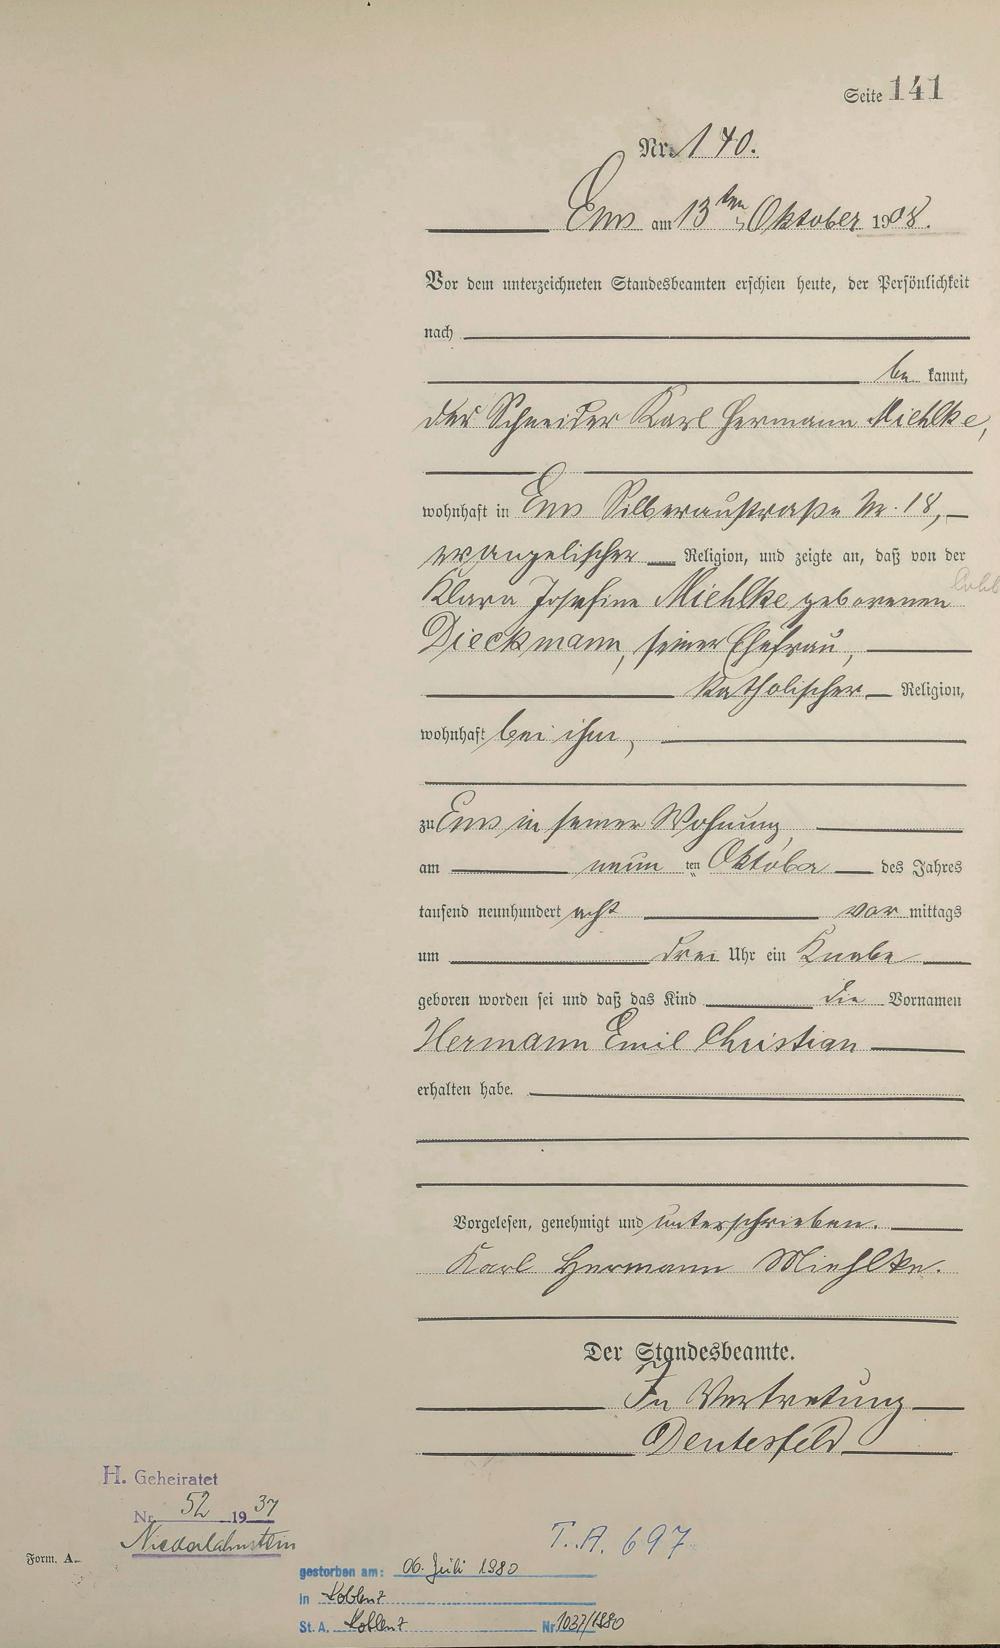 Seite 141
Nr. 140.
Ems am 13ten Oktober 1908.
Vor dem unterzeichneten Standesbeamten erschien heute, der Persönlichkeit
nach
be kannt,
der Schneider Karl Hermann Miehlke,
wohnhaft in Ems Silberaustraße Nr. 18,
evangelischer Religion, und zeigte an, daß von der
Klara Josefine Miehlke geborenen
Dieckmann, seiner Ehefrau,
katholischer Religion,
wohnhaft bei ihm,
zu Ems in seiner Wohnung,
am neun ten Oktober des Jahres
tausend neunhundert acht vor mittags
um drei Uhr ein Knabe
geboren worden sei und daß das Kind die Vornamen
Hermann Emil Christian
erhalten habe.
Vorgelesen, genehmigt und unterschrieben.
Karl Hermann Miehlke.
Der Standesbeamte.
In Vertretung
Deutesfeld
H. Geheiratet
Nr. 52 1937
Niederlahnstein
Form. A.
T. A. 697
gestorben am: 06. Juli 1980
in Koblenz
St. A. Koblenz Nr 1037/1980